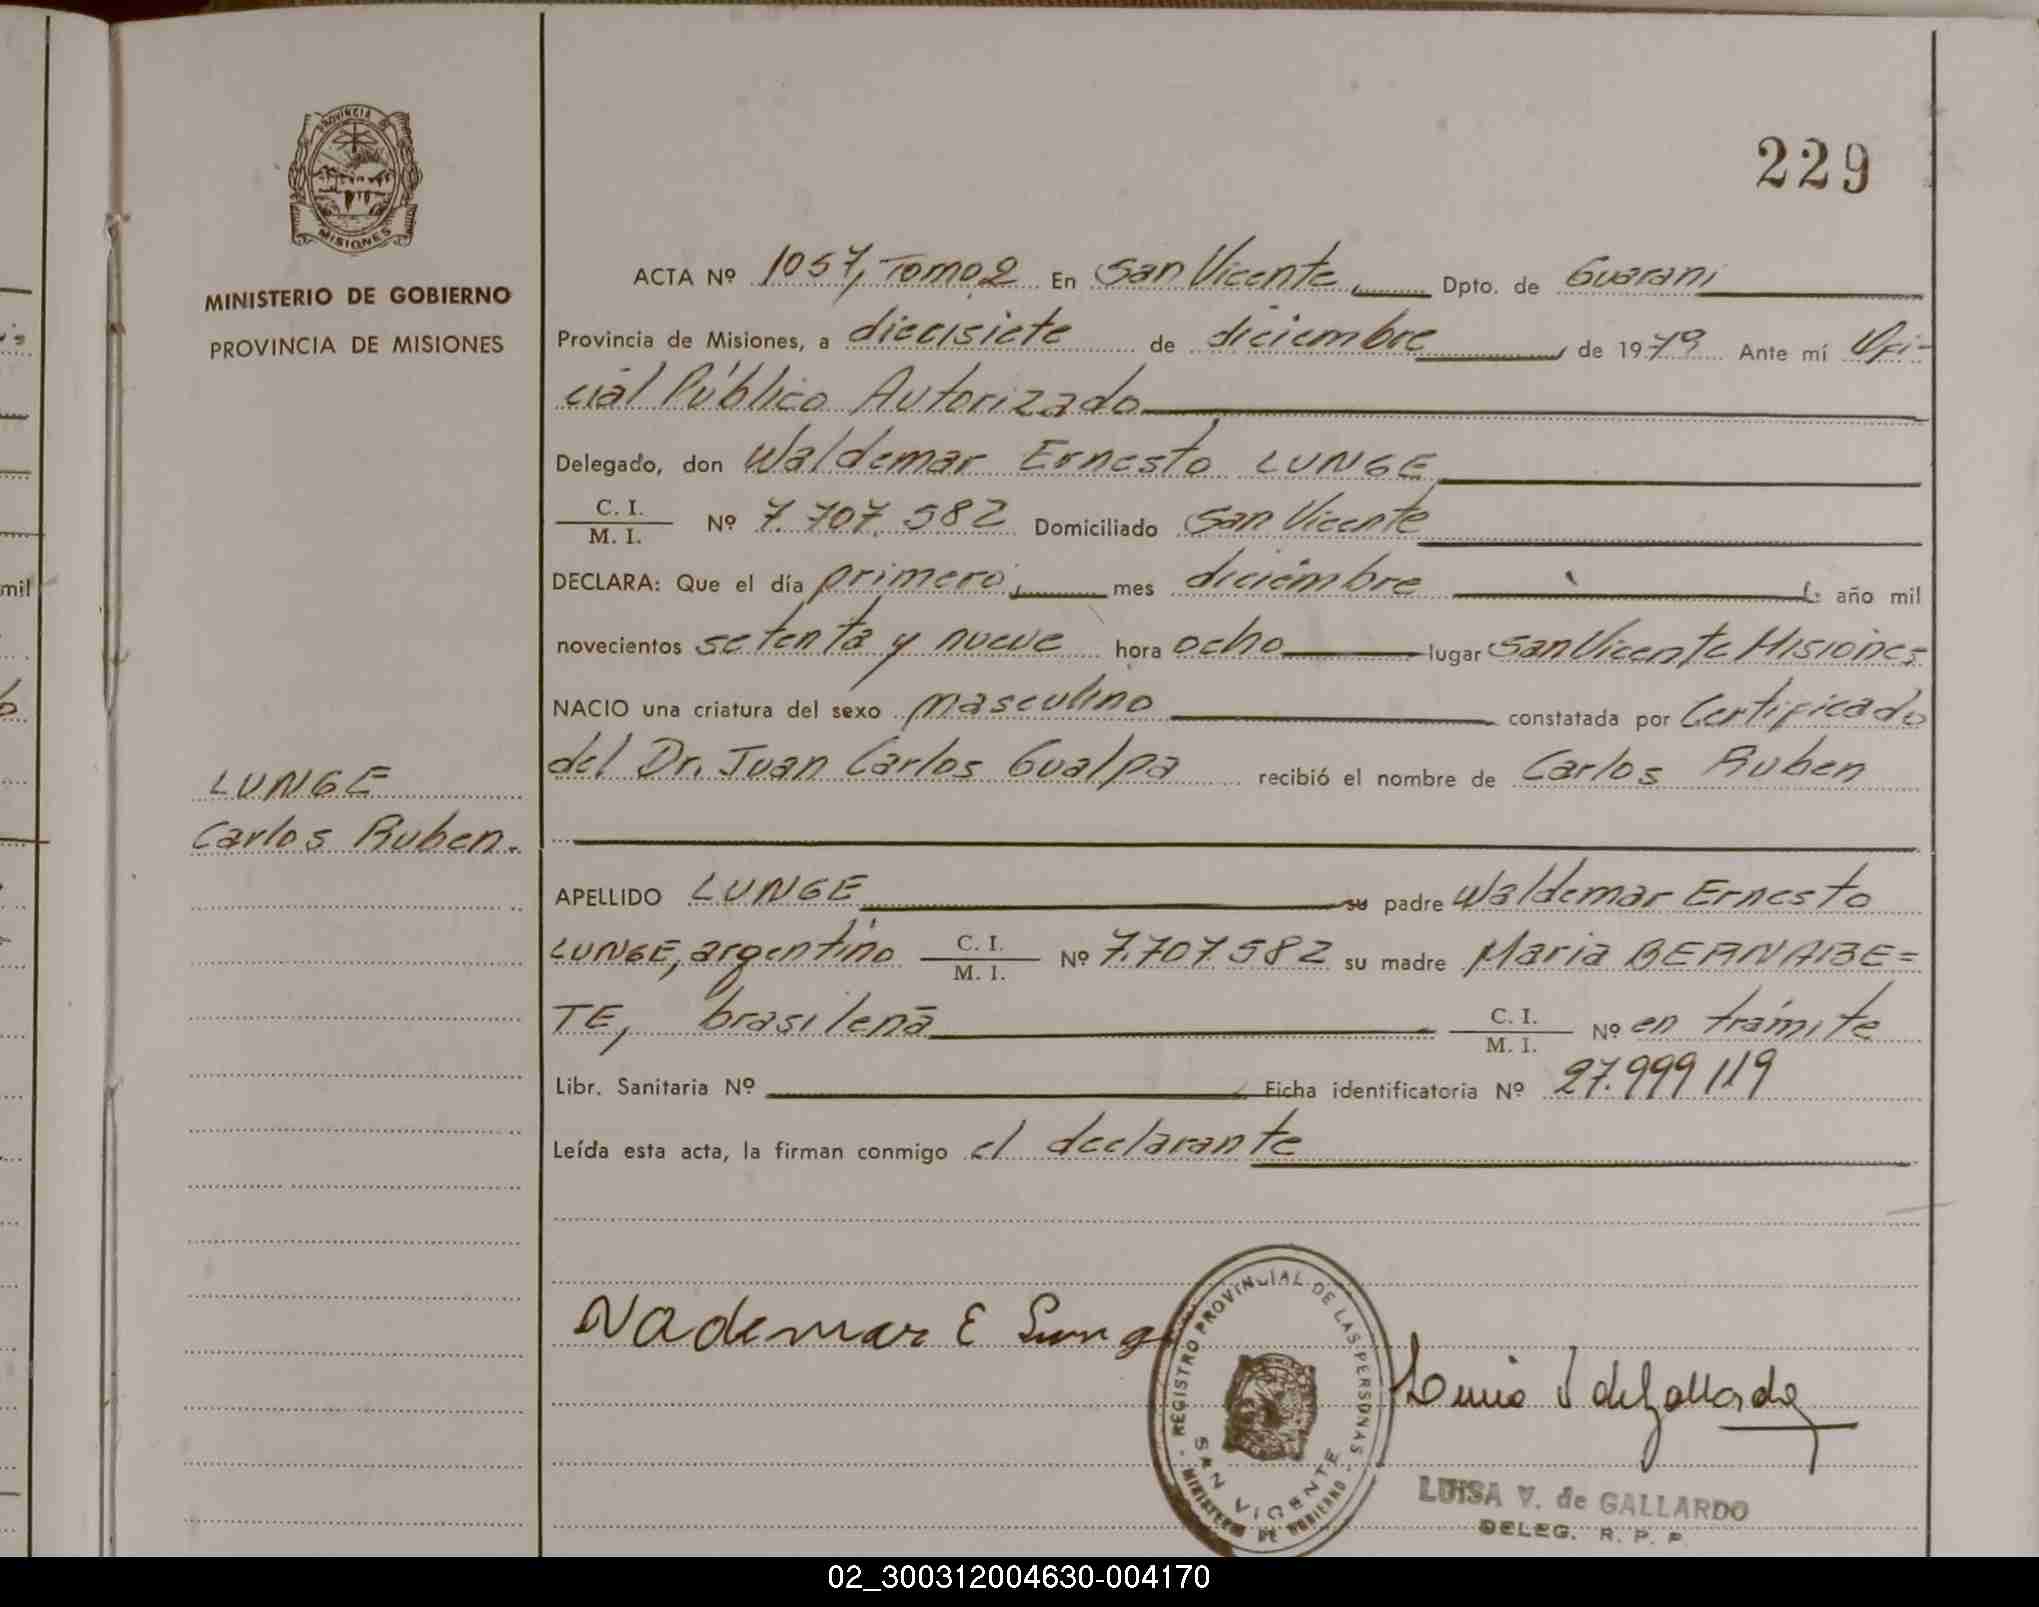 PROVINCIA DE
MISIONES
MINISTERIO DE GOBIERNO
PROVINCIA DE MISIONES
LUNGE
Carlos Ruben.
229
ACTA Nº 1057, Tomo 2 En San Vicente, Dpto. de Guarani
Provincia de Misiones, a diecisiete de diciembre, de 1979 Ante mí Ofi-
cial Público Autorizado
Delegado, don Waldemar Ernesto LUNGE
C. I.
M. I. Nº 7.707.582 Domiciliado San Vicente
DECLARA: Que el día primero, mes diciembre año mil
novecientos setenta y nueve hora ocho lugar San Vicente Misiones
NACIO una criatura del sexo masculino constatada por Certificado
del Dr. Juan Carlos Gualpa recibió el nombre de Carlos Ruben
APELLIDO LUNGE su padre Waldemar Ernesto
LUNGE, argentino C. I. M. I. Nº 7.707.582 su madre Maria BERNABE=
TE, brasileña C. I. M. I. Nº en trámite
Libr. Sanitaria Nº Ficha identificatoria Nº 27.999.119
Leída esta acta, la firman conmigo el declarante
Wademar E Lunge
REGISTRO PROVINCIAL DE LAS PERSONAS
SAN VICENTE
MINISTERIO DE GOBIERNO
Luisa V de Gallardo
LUISA V. de GALLARDO
DELEG. R. P. P.
02_300312004630-004170
mil